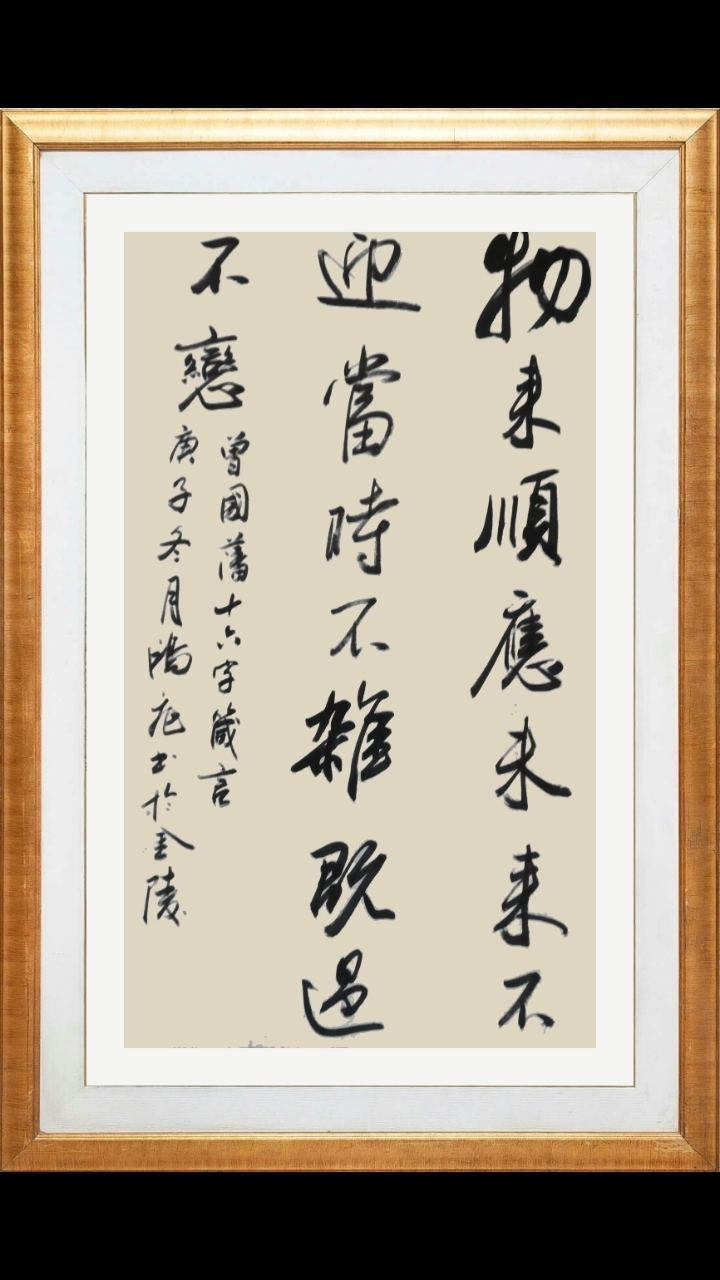 物来順應未来不
迎當時不雜既過
不戀
曾國藩十六字箴言
庚子冬月陽 书於金陵